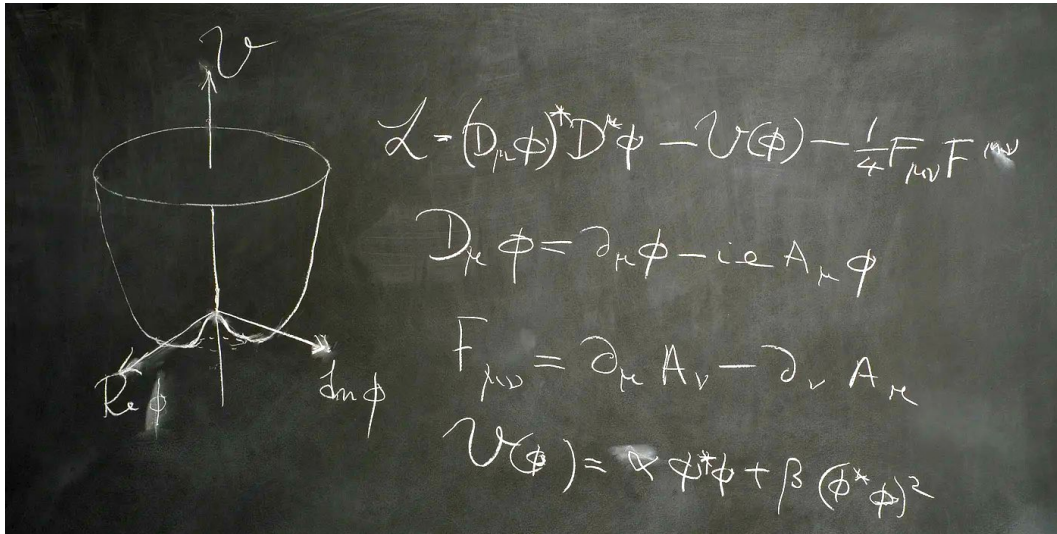 V
Re φ
Im φ
ℒ = (D_μ φ)* D^μ φ − V(φ) − 1/4 F_μν F^μν
D_μ φ = ∂_μ φ − ie A_μ φ
F_μν = ∂_μ A_ν − ∂_ν A_μ
V(φ) = α φ*φ + β (φ*φ)²